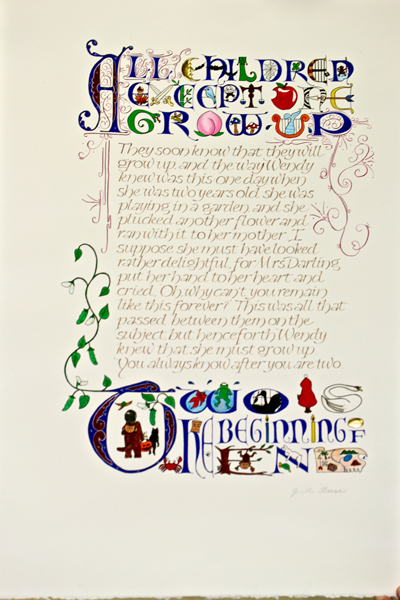 ALL CHILDREN
EXCEPT ONE
GROW UP
They soon know that they will
grow up, and the way Wendy
knew was this. one day when
she was two years old she was
playing in a garden, and she
plucked another flower and
ran with it to her mother. I
suppose she must have looked
rather delightful, for Mrs Darling
put her hand to her heart and
cried, Oh, why can't you remain
like this forever? This was all that
passed between them on the
subject, but henceforth Wendy
knew that she must grow up.
You always know after you are two
TWO IS
THE BEGINNING OF
THE END